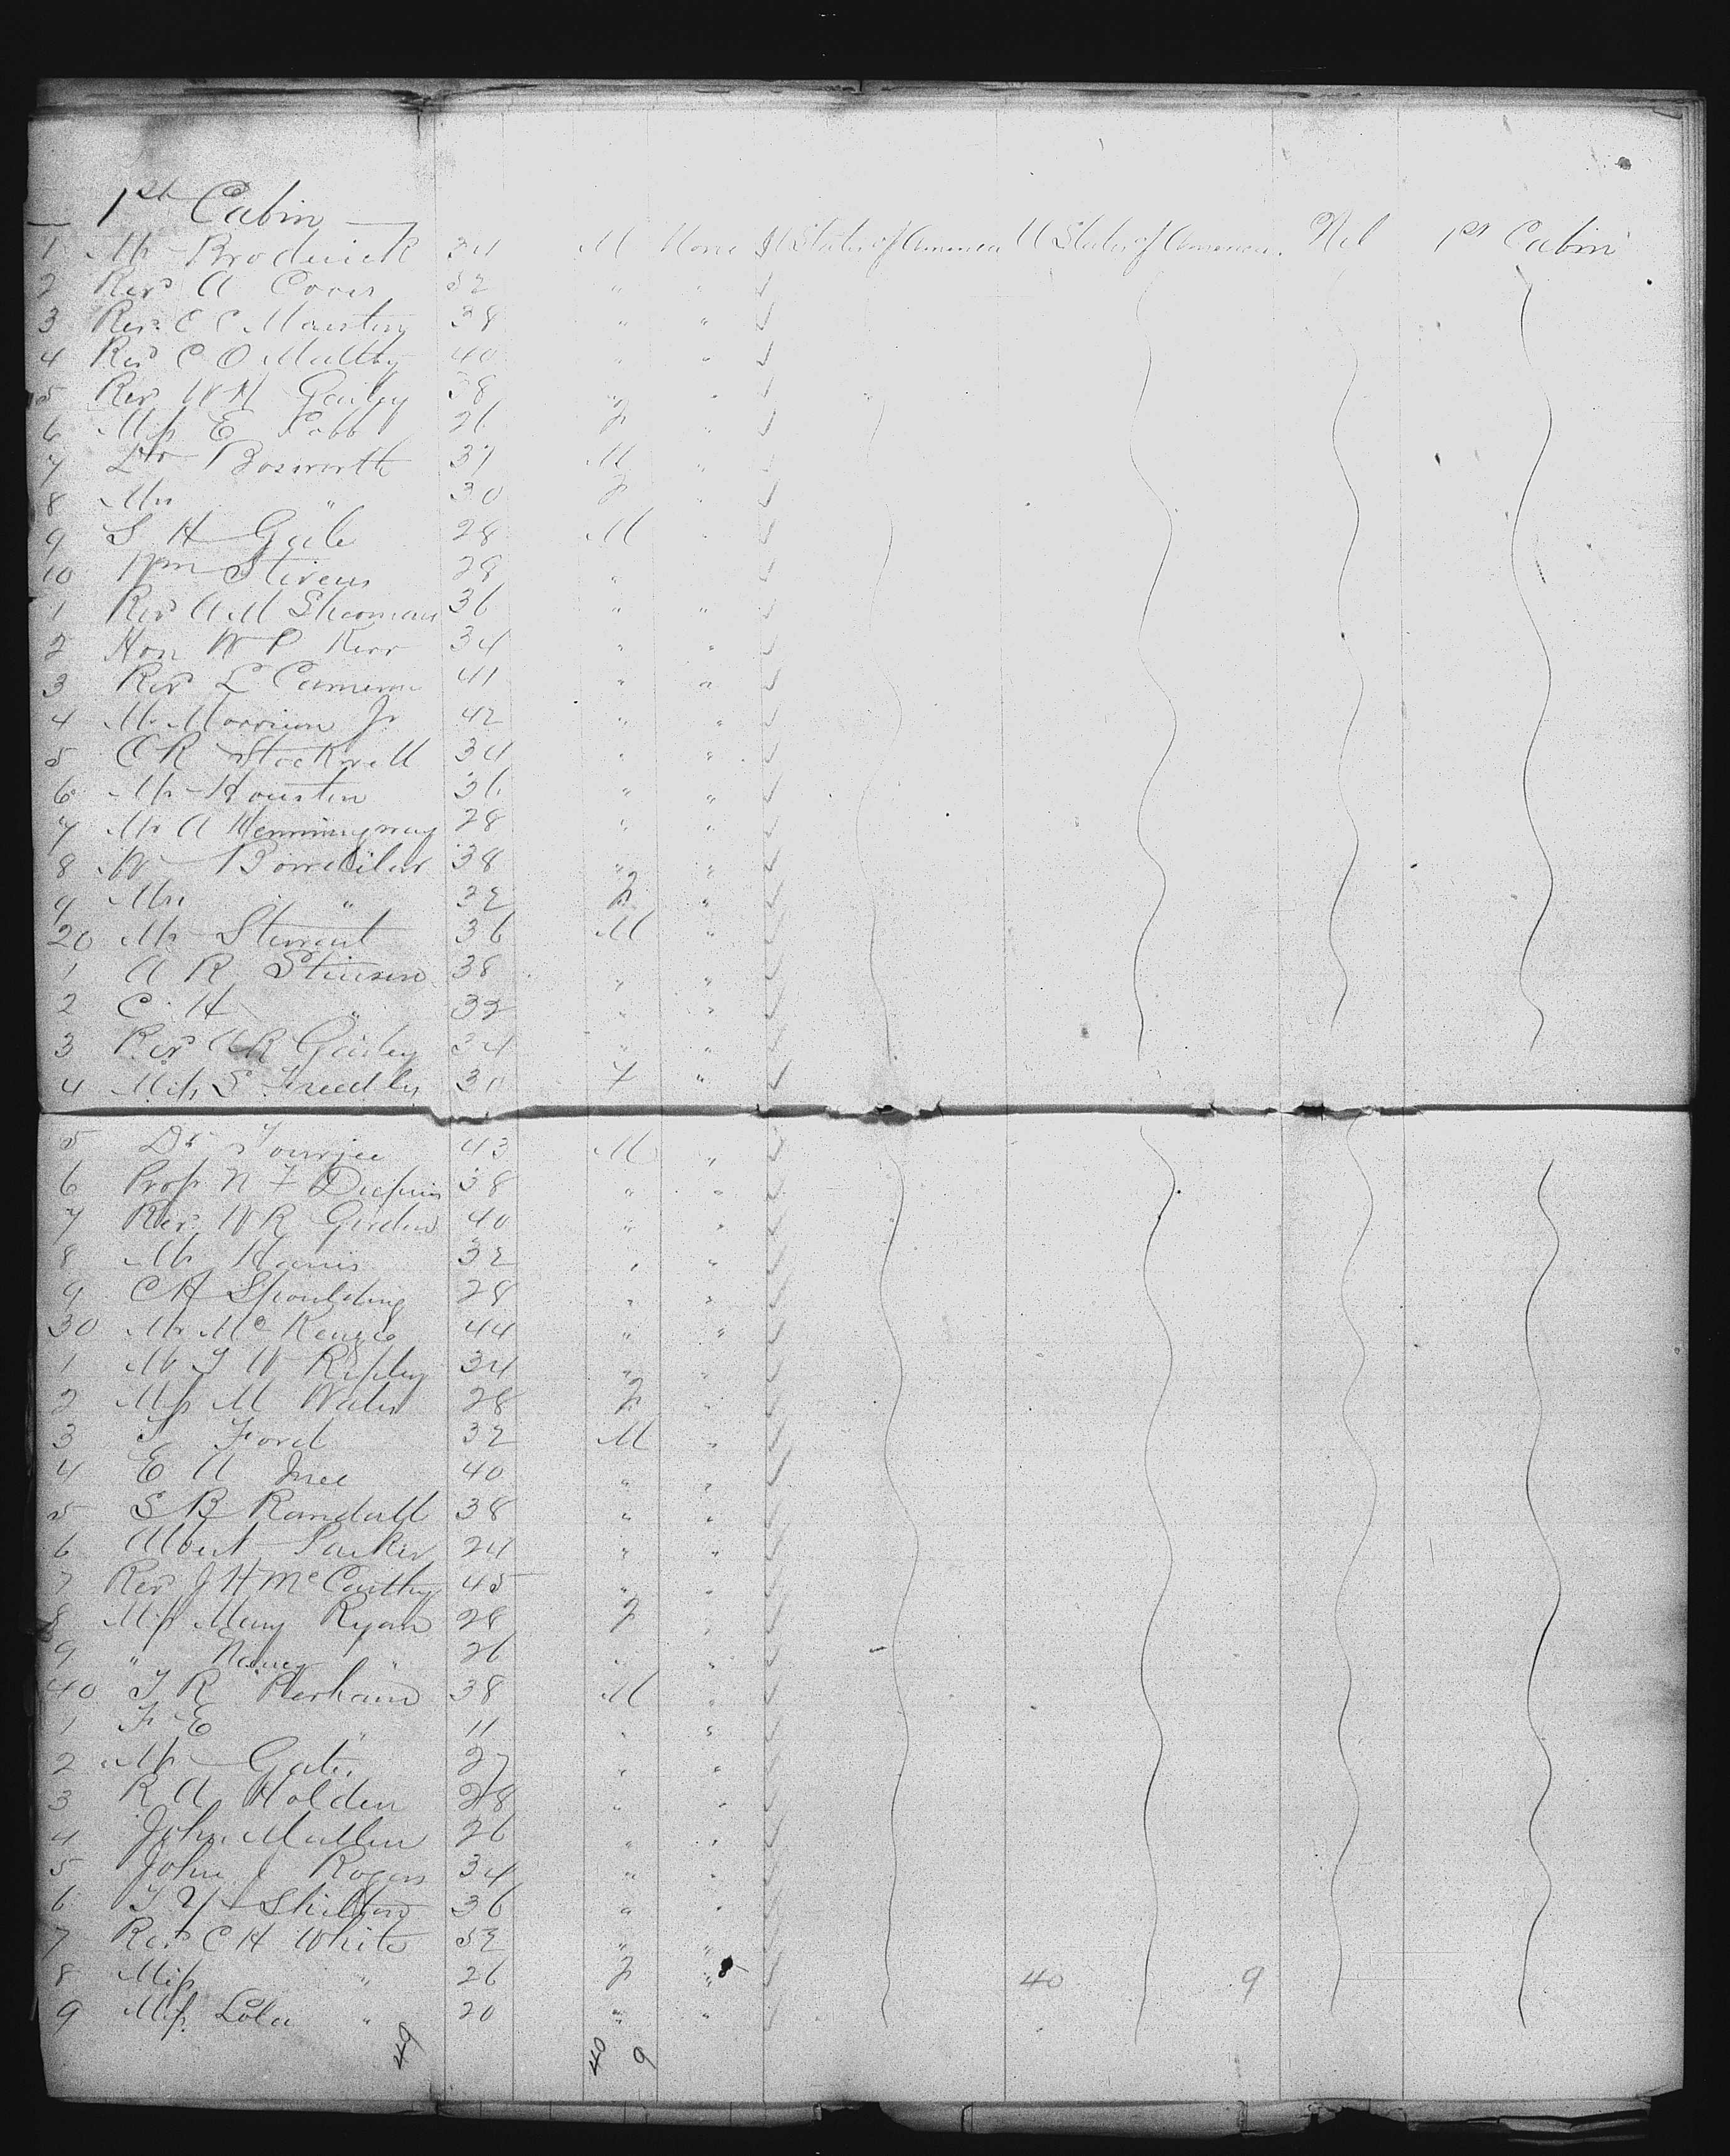 1st Cabin
1 Mr Broderick 34 M None U States of America U States of America. Nil 1st Cabin
2 Revd A 52 " "
3 Rev. E C 38 " "
4 Revd C O Maltby 40 " "
5 Rev W H Gailey 38 " "
6 Miss E Cobb 26 F "
7 Dr Bosworth 37 M "
8 Mrs " 30 F "
9 S H Gale 28 M "
10 Wm Stevens 28 "
1 Revd A M Sherman 36 " "
2 Hon W P Kerr 34 " "
3 Revd L Cameron 41 " "
4 M. Morrison Jr 42 " "
5 C R Stockwell 34 " "
6 Mr Houston 36 " "
7 Mr A Hemmingway 28 " "
8 W 38 " "
9 Mrs " 32 F "
20 Mr Stewart 36 M "
1 A R Stinson 38 " "
2 C. H " 32 " "
3 Rev A R Gailey 34 " "
4 Miss S 30 F "
5 Dr Tourjee 43 M "
6 Prof N F 38 " "
7 Rev. W R 40 " "
8 Mr Harris 32 " "
9 C H Spoulding 28 " "
30 Mr McKenzie 44 " "
1 Mr J W Ripley 34 " "
2 Miss M Wales 28 F "
3 Ford 32 M "
4 E A 40 " "
5 S B Randall 38 " "
6 Albert Parker 24 " "
7 Rev J H McCarthy 45 " "
8 Miss Mary Ryan 28 F "
9 " Nancy " 26 " "
40 J R Perham 38 M "
1 F E " 11 " "
2 Mr Gates 27 " "
3 R A Holden 28 " "
4 John Mullen 26 " "
5 John J Rogers 34 " "
6 J Y Skilton 36 " "
7 Rev. C H White 52 " "
8 Miss " 26 F " 40 9
9 Miss Lola " 20 " "
49 40 9